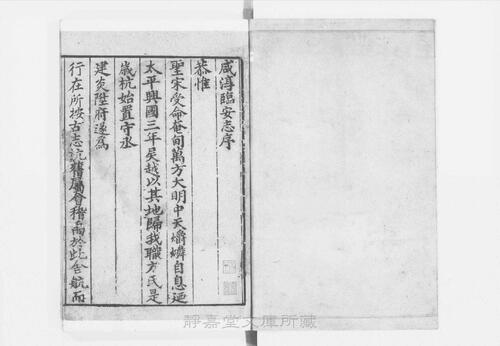 咸淳臨安志序
恭惟
聖宋受命奄甸萬方大明中天爝燐自息逎
太平興國三年吳越以其地歸我職方氏是
歲杭始置守丞
建炎陞府遂為
行在所按古志杭舊屬會稽禹於此舍航而
靜嘉堂文庫所藏